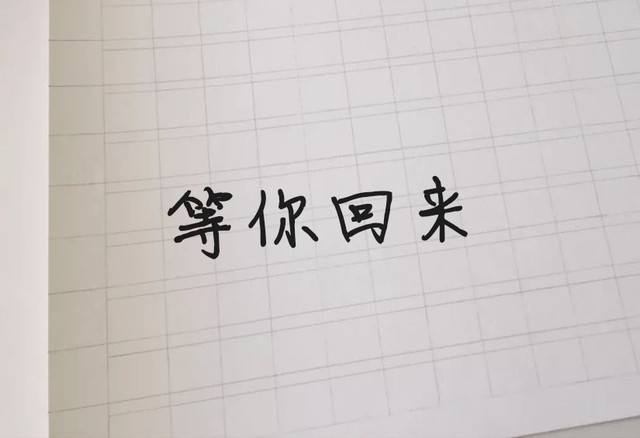 等你回来